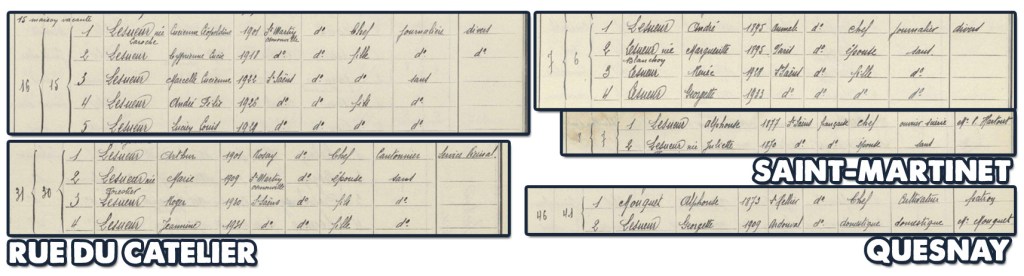 15 maison vacante
1 Lesueur née Lucienne Léopoldine 1901 St Martin d° Chef journalière divers
2 Lesueur Lucie 1918 d° d° fille d° d°
16 15 3 Lesueur Marcelle Lucienne 1922 St Saëns d° d° sans
4 Lesueur André Felix 1926 d° d° fils d°
5 Lesueur Lucien Louis 1929 d° d° d° d°
1 Lesueur Arthur 1901 Rosay d° Chef Cantonnier
31 30 2 Lesueur née Marie 1909 St Martin d° épouse sans
3 Lesueur Roger 1930 St Saëns d° fils d°
4 Lesueur Jeannine 1931 d° d° fille d°
RUE DU CATELIER
1 Lesueur André 1895 d° Chef journalier divers
7 6 2 Lesueur née Marguerite 1895 Paris d° épouse sans
3 Lesueur 1928 St Saëns d° fille d°
4 Lesueur Georgette 1933 d° d° d° d°
7 1 Lesueur Alphonse 1877 St Saëns française Chef ouvrier
2 Lesueur née Juliette 1870 d° d° épouse sans
SAINT-MARTINET
46 1 Mouquet Alphonse 1873 d° Chef Cultivateur patron
2 Lesueur Georgette 1909 d° domestique domestique Mr Mouquet
QUESNAY